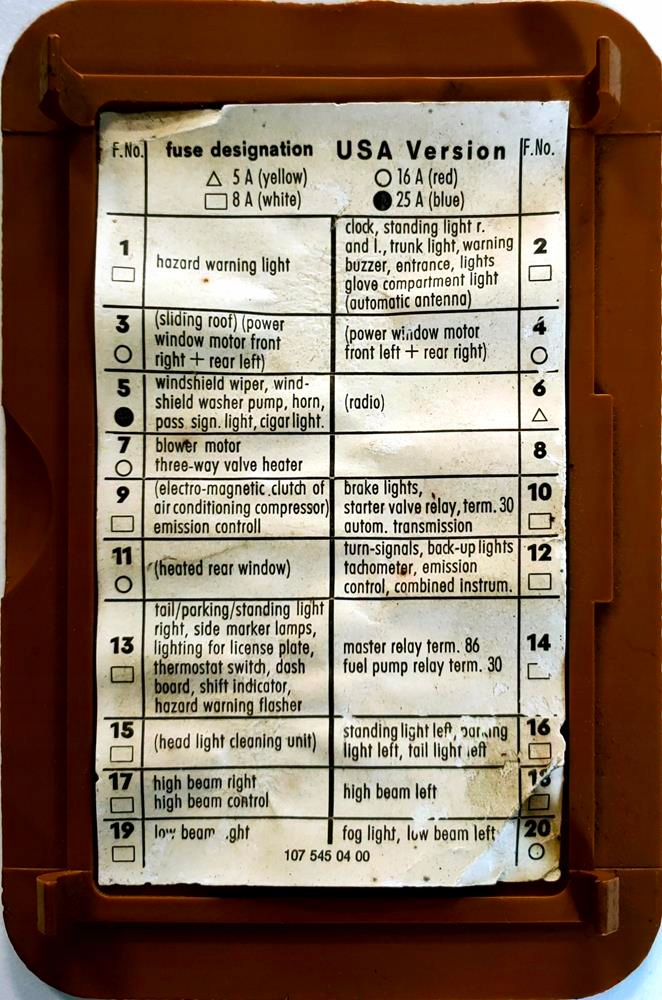 F.No. fuse designation USA Version F.No.
△ 5 A (yellow) ○ 16 A (red)
□ 8 A (white) ● 25 A (blue)
1 □
hazard warning light
clock, standing light r.
and l., trunk light, warning
buzzer, entrance, lights
glove compartment light
(automatic antenna)
2 □
3 ○
(sliding roof) (power
window motor front
right + rear left)
(power window motor
front left + rear right)
4 ○
5 ●
windshield wiper, wind-
shield washer pump, horn,
pass. sign. light, cigar light.
(radio)
6 △
7 ○
blower motor
three-way valve heater
8
9 □
(electro-magnetic clutch of
air conditioning compressor)
emission controll
brake lights,
starter valve relay, term. 30
autom. transmission
10 □
11 ○
(heated rear window)
turn-signals, back-up lights
tachometer, emission
control, combined instrum.
12 □
13 □
tail/parking/standing light
right, side marker lamps,
lighting for license plate,
thermostat switch, dash
board, shift indicator,
hazard warning flasher
master relay term. 86
fuel pump relay term. 30
14 □
15 □
(head light cleaning unit)
standing light left, parking
light left, tail light left
16 □
17 □
high beam right
high beam control
high beam left
18 □
19 □
low beam
fog light, low beam left
20 ○
107 545 04 00